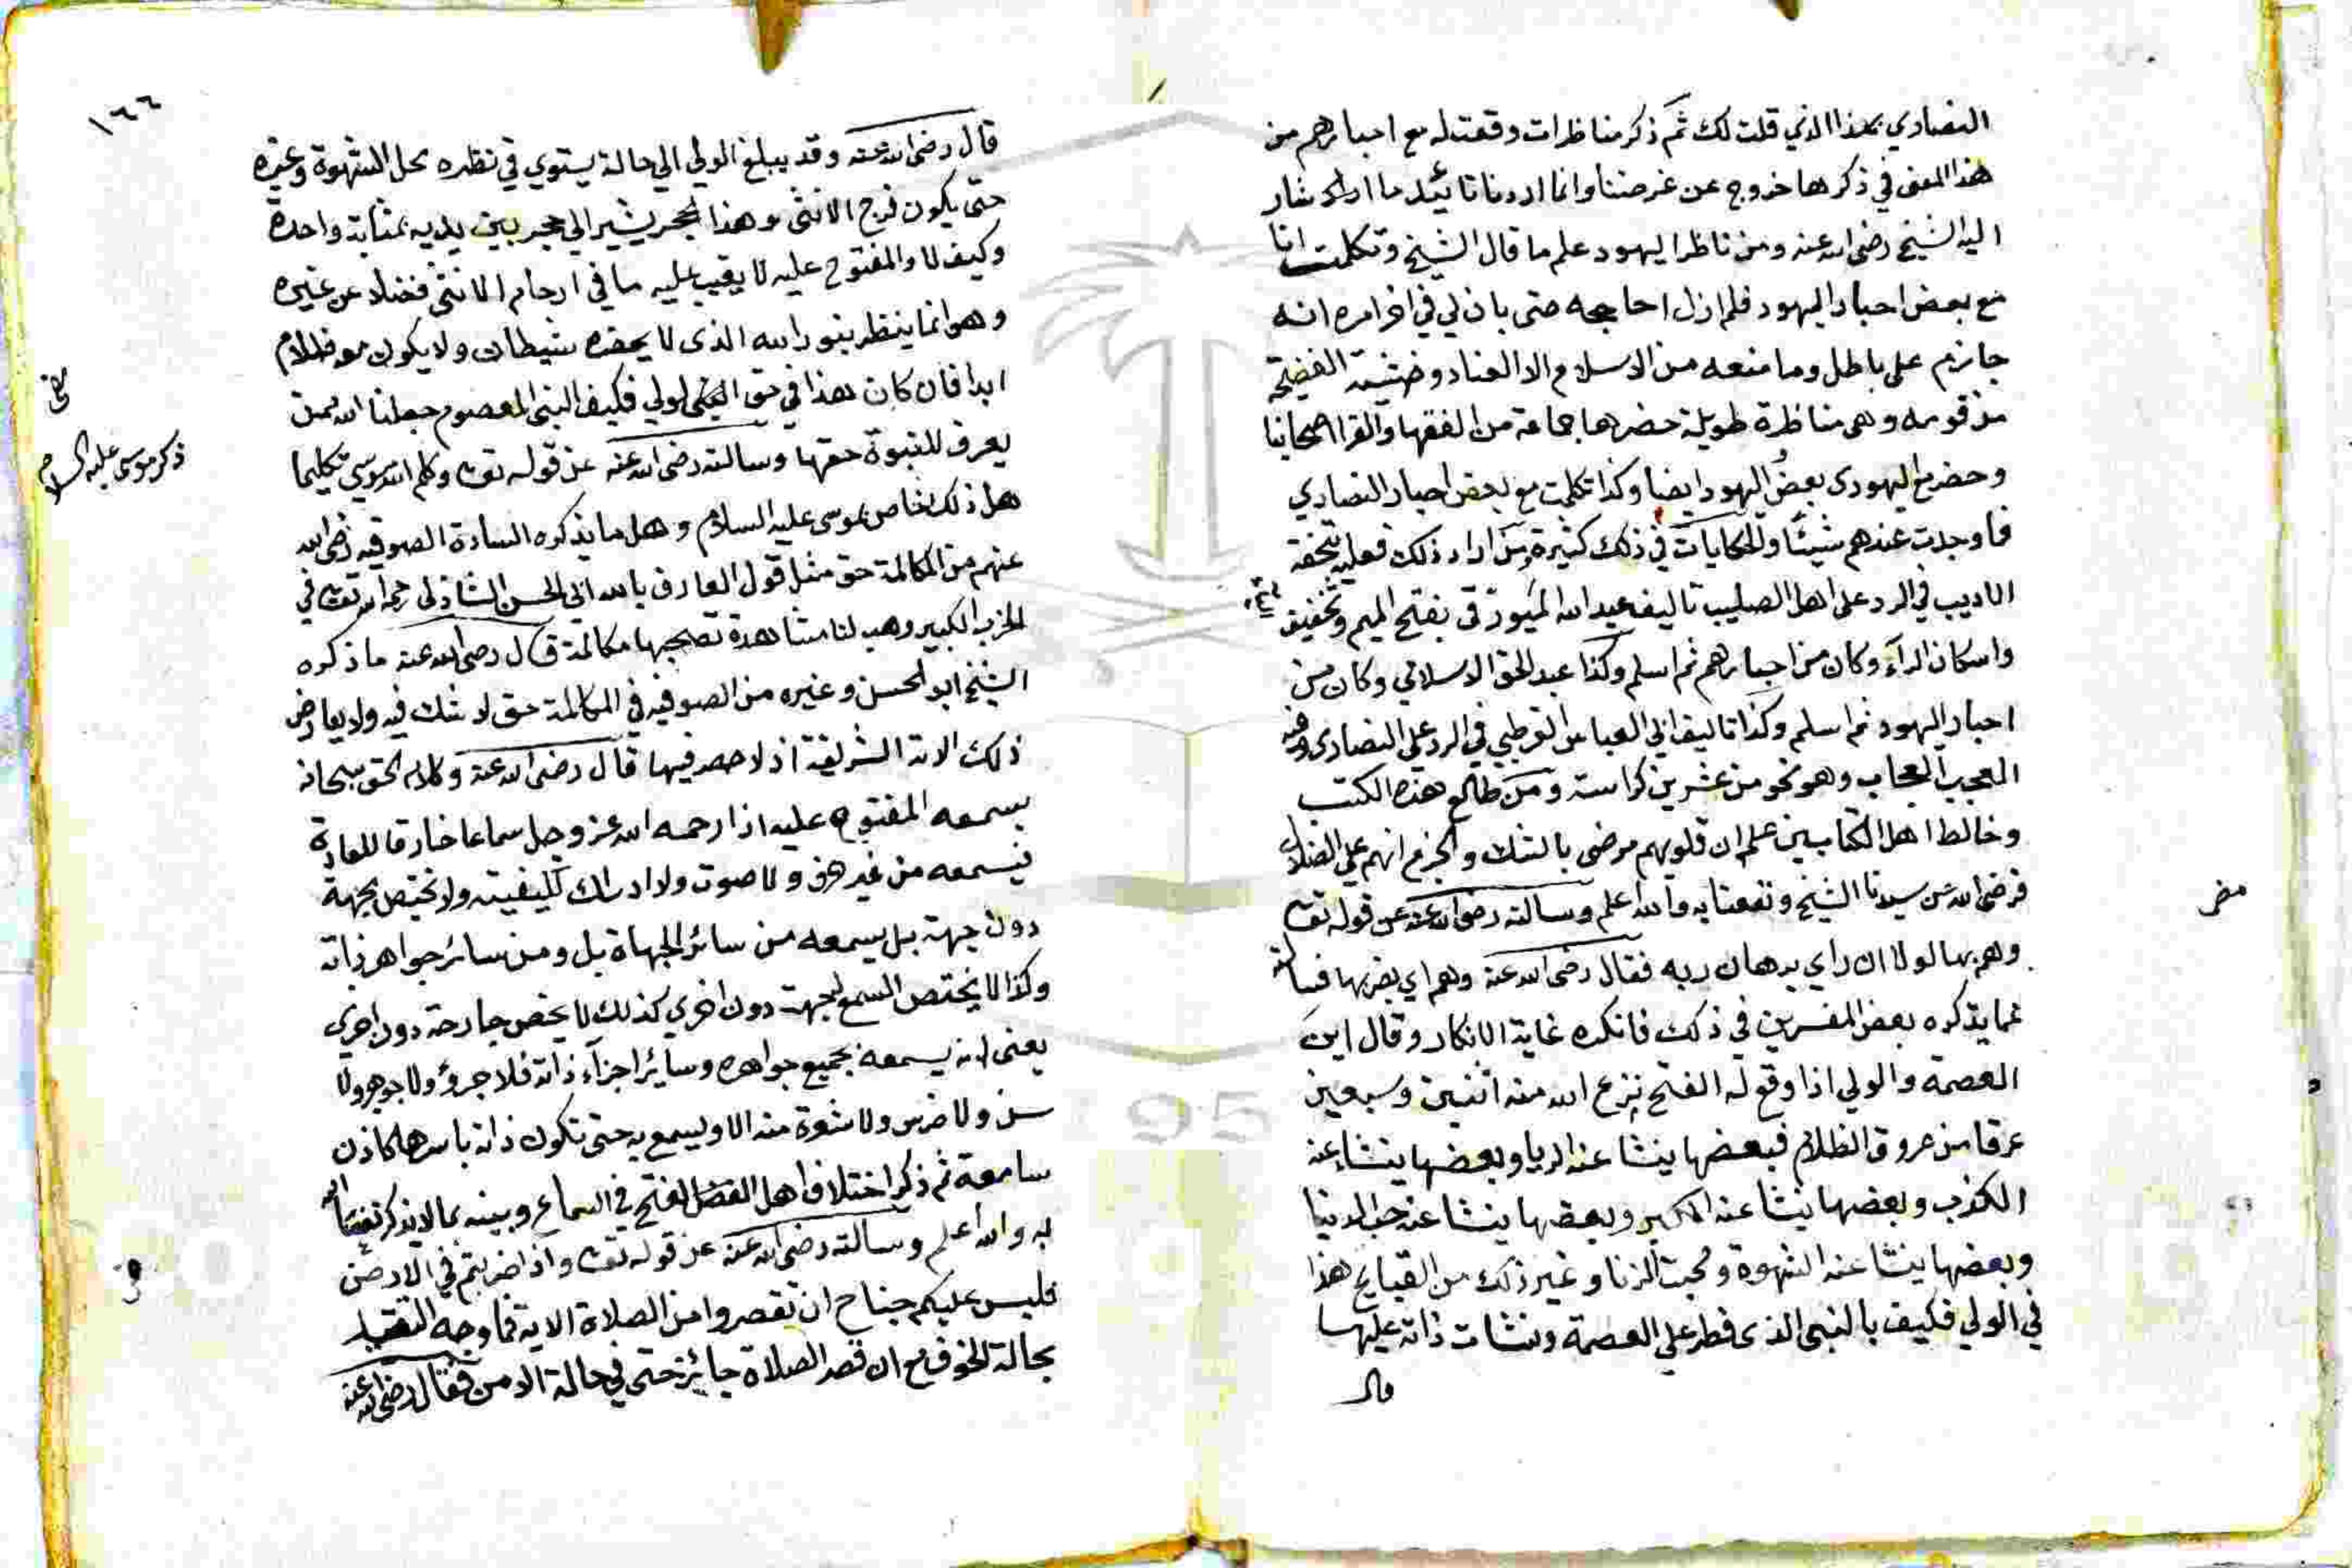 النصاري بهذا الذي قلت لك ثم ذكر مناظرات وقعت له مع احبارهم من
هذا المعنى في ذكرها خروج عن غرضنا وانما اردنا تأييد ما اراد شار
اليه الشيخ رضى الله عنه ومن ناظر اليهود علم ما قال الشيخ وتكلمت انا
مع بعض احبار اليهود فلم ازل احاججه حتى بان لي في اخر امره انه
جازم على باطل وما منعه من الاسلام الا العناد وخشية الفضيحة
من قومه وهى مناظرة طويلة حضرها جماعة من الفقها والقرا اصحابنا
وحضر مع اليهودى بعض اليهود ايضا وكذا تكلمت مع بعض احبار النصاري
فما وجدت عندهم شيئا والحكايات في ذلك كثيرة ومن اراد ذلك فعليه بتحفة
الاديب في الرد على اهل الصليب تاليف عبد الله الميورقى بفتح الميم وتخفيف
واسكان الرآء وكان من احبارهم ثم اسلم وكذا عبد الحق الاسلامي وكان من
احبار اليهود ثم اسلم وكذا تاليف ابي العباس القرطبي في الرد على النصارى وفيه
العجب العجاب وهو نحو من عشرين كراسة ومن طالع هذه الكتب
وخالط اهل الكتابين علم ان قلوبهم مرضى بالشك والجزم انهم على الضلال
فرضى الله عن سيدنا الشيخ ونفعنا به والله اعلم وسالته رضى الله عنه عن قوله تعالى
وهم بها لولا ان راي برهان ربه فقال رضى الله عنه وهم اي بضربها فسالته
عما يذكره بعض المفسرين في ذلك فانكره غاية الانكار وقال اين
العصمة والولي اذا وقع له الفتح نزع الله منه اثنين وسبعين
عرقا من عروق الظلام فبعضها ينشا عنه الريا وبعضها ينشا عنه
الكذب وبعضها ينشا عنه الكبر وبعضها ينشا عنه حب الدنيا
وبعضها ينشا عنه الشهوة ومحبة الزنا وغير ذلك من القبايح هذا
في الولي فكيف بالنبي الذى فطر على العصمة ونشات ذاته عليها
قال
١٦٦
قال رضى الله عنه وقد يبلغ الولي الي حالة يستوي في نظره محل الشهوة وغيره
حتى يكون فرج الانثى وهذا الحجر يشير الي حجر بين يديه بمثابة واحدة
وكيف لا والمفتوح عليه لا يغيب عليه ما في ارحام الانثى فضلا عن غيره
وهو انما ينظر بنور الله الذى لا يحضره شيطان ولا يكون معه ظلام
ابدا فان كان هذا في حق الولي فكيف النبي المعصوم جعلنا الله ممن
يعرف للنبوة حقها وسالته رضى الله عنه عن قوله تعالى وكلم الله موسي تكليما
هل ذلك خاص بموسى عليه السلام وهل ما يذكره السادة الصوفيه رضى الله
عنهم من المكالمة حق مثل قول العارف بالله ابي الحسن الشاذلى رحمه الله تعالى في
الحزب الكبير وهب لنا مشاهدة تصحبها مكالمة قال رضى الله عنه ما ذكره
الشيخ ابو الحسن وغيره من الصوفيه في المكالمة حق لا شك فيه ولا يعارض
ذلك الاية الشريفة اذ لا حصر فيها قال رضى الله عنه وكلام الحق سبحانه
يسمعه المفتوح عليه اذا رحمه الله عز وجل سماعا خارقا للعادة
فيسمعه من غير حرف ولا صوت ولا ادراك لكيفيته ولا يختص بجهة
دون جهة بل يسمعه من سائر الجهاة بل ومن سائر جواهر ذاته
وكما لا يختص السمع لجهة دون اخري كذلك لا يخص جارحة دون اخري
يعنى انه يسمعه بجميع جواهره وسائر اجزآء ذاته فلا جزؤ ولا جوهر ولا
سن ولا ضرس ولا شعرة منه الا ويسمع به حتى تكون ذاته باسرها كاذن
سامعة ثم ذكر اختلاف اهل الفتح في السماع وبينه بما لا يذكر نفعنا الله
به والله اعلم وسالته رضى الله عنه عن قوله تعالى واذا ضربتم في الارض
فليس عليكم جناح ان تقصروا من الصلاة الاية فما وجه التقييد
بحالة الخوف مع ان قصر الصلاة جائز حتى في حالة الامن فقال رضى الله عنه
ذكر موسى عليه السلام